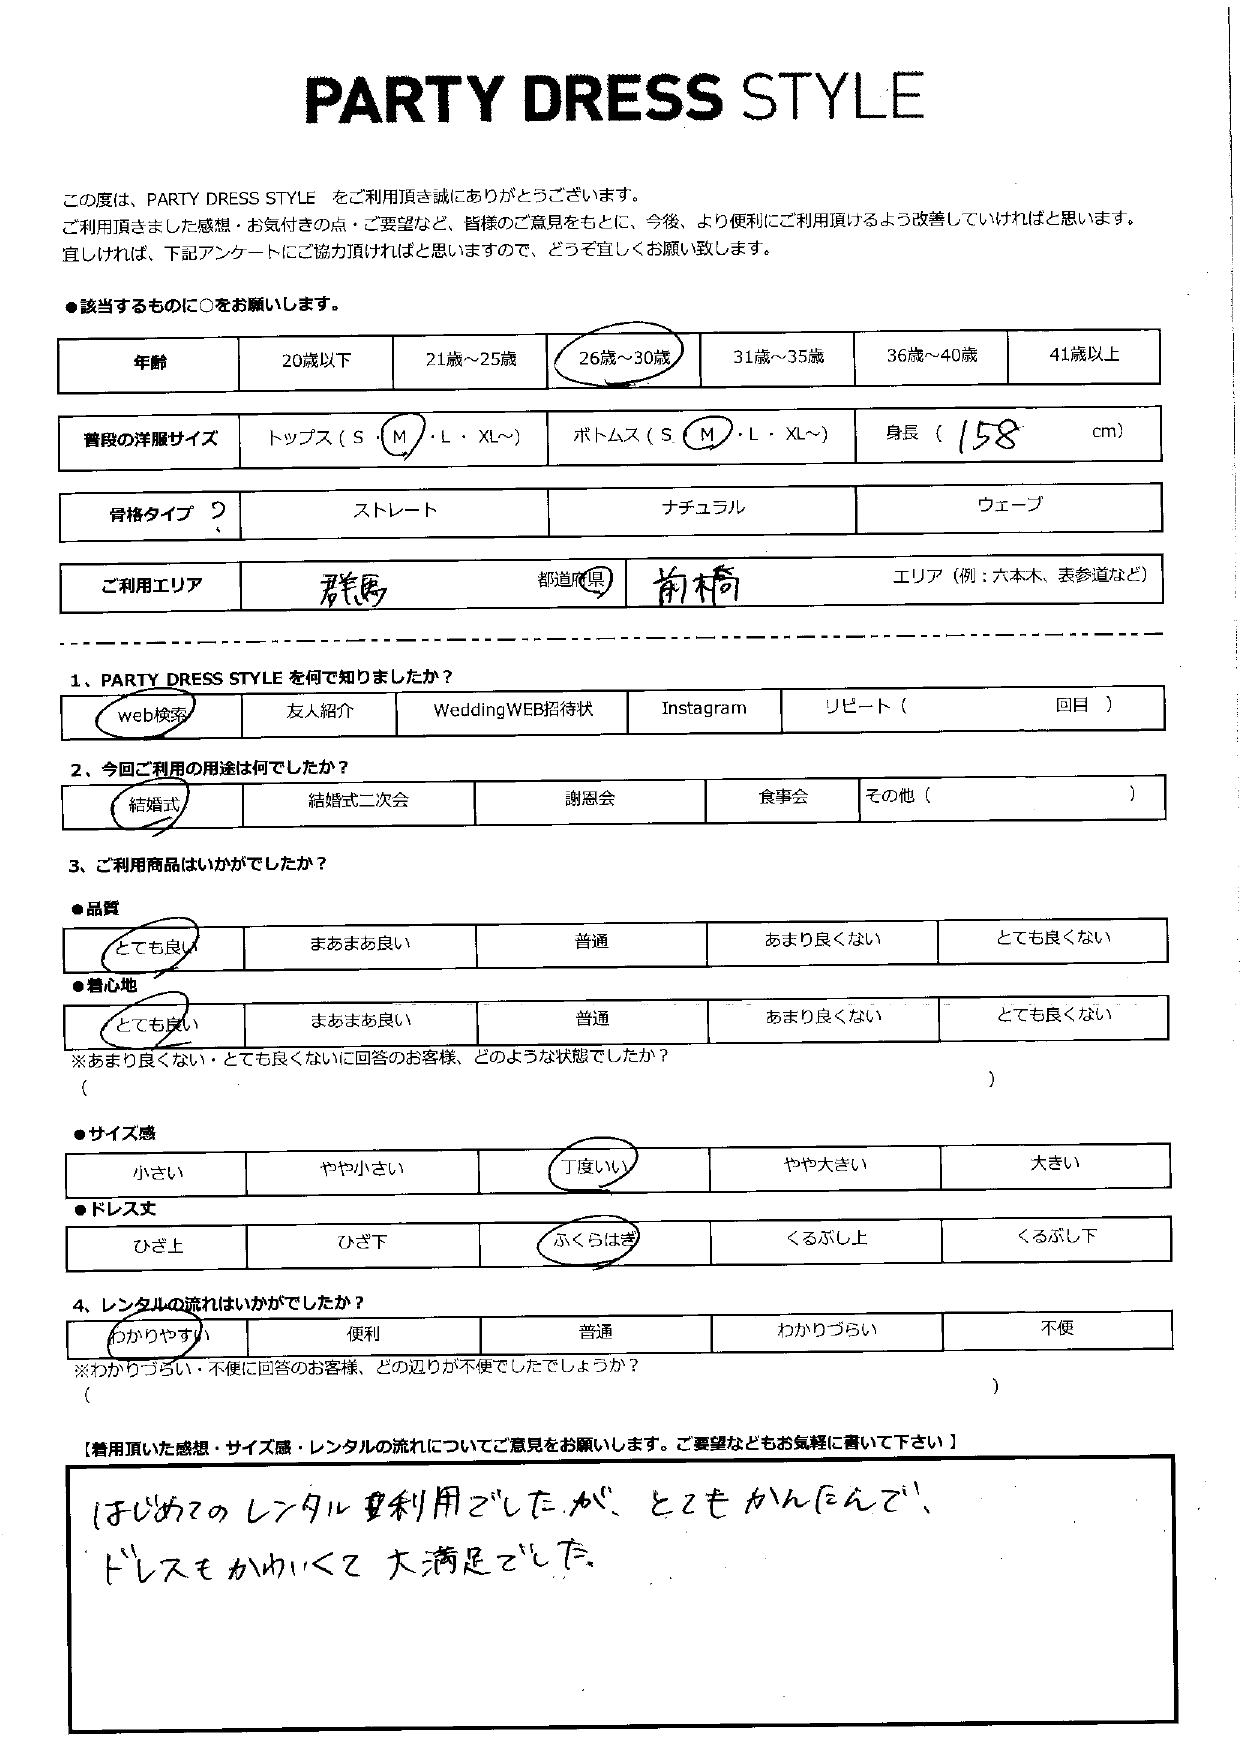 PARTY DRESS STYLE
この度は、PARTY DRESS STYLE をご利用頂き誠にありがとうございます。
ご利用頂きました感想・お気付きの点・ご要望など、皆様のご意見をもとに、今後、より便利にご利用頂けるよう改善していければと思います。
宜しければ、下記アンケートにご協力頂ければと思いますので、どうぞ宜しくお願い致します。
●該当するものに○をお願いします。
年齢 20歳以下 21歳～25歳 26歳～30歳 31歳～35歳 36歳～40歳 41歳以上
普段の洋服サイズ トップス（ S ・ M ・ L ・ XL～） ボトムス（ S M ・ L ・ XL～） 身長 （ 158 cm）
骨格タイプ ? ストレート ナチュラル ウェーブ
ご利用エリア 群馬 都道府県 前橋 エリア（例：六本木、表参道など）
1、PARTY DRESS STYLE を何で知りましたか？
web検索 友人紹介 WeddingWEB招待状 Instagram リピート（ 回目 ）
2、今回ご利用の用途は何でしたか？
結婚式 結婚式二次会 謝恩会 食事会 その他（ ）
3、ご利用商品はいかがでしたか？
●品質
とても良い まあまあ良い 普通 あまり良くない とても良くない
●着心地
とても良い まあまあ良い 普通 あまり良くない とても良くない
※あまり良くない・とても良くないに回答のお客様、どのような状態でしたか？
（ ）
●サイズ感
小さい やや小さい 丁度いい やや大きい 大きい
●ドレス丈
ひざ上 ひざ下 ふくらはぎ くるぶし上 くるぶし下
4、レンタルの流れはいかがでしたか？
わかりやすい 便利 普通 わかりづらい 不便
※わかりづらい・不便に回答のお客様、どの辺りが不便でしたでしょうか？
（ ）
【着用頂いた感想・サイズ感・レンタルの流れについてご意見をお願いします。ご要望などもお気軽に書いて下さい】
はじめてのレンタル利用でしたが、とてもかんたんで、
ドレスもかわいくて大満足でした。